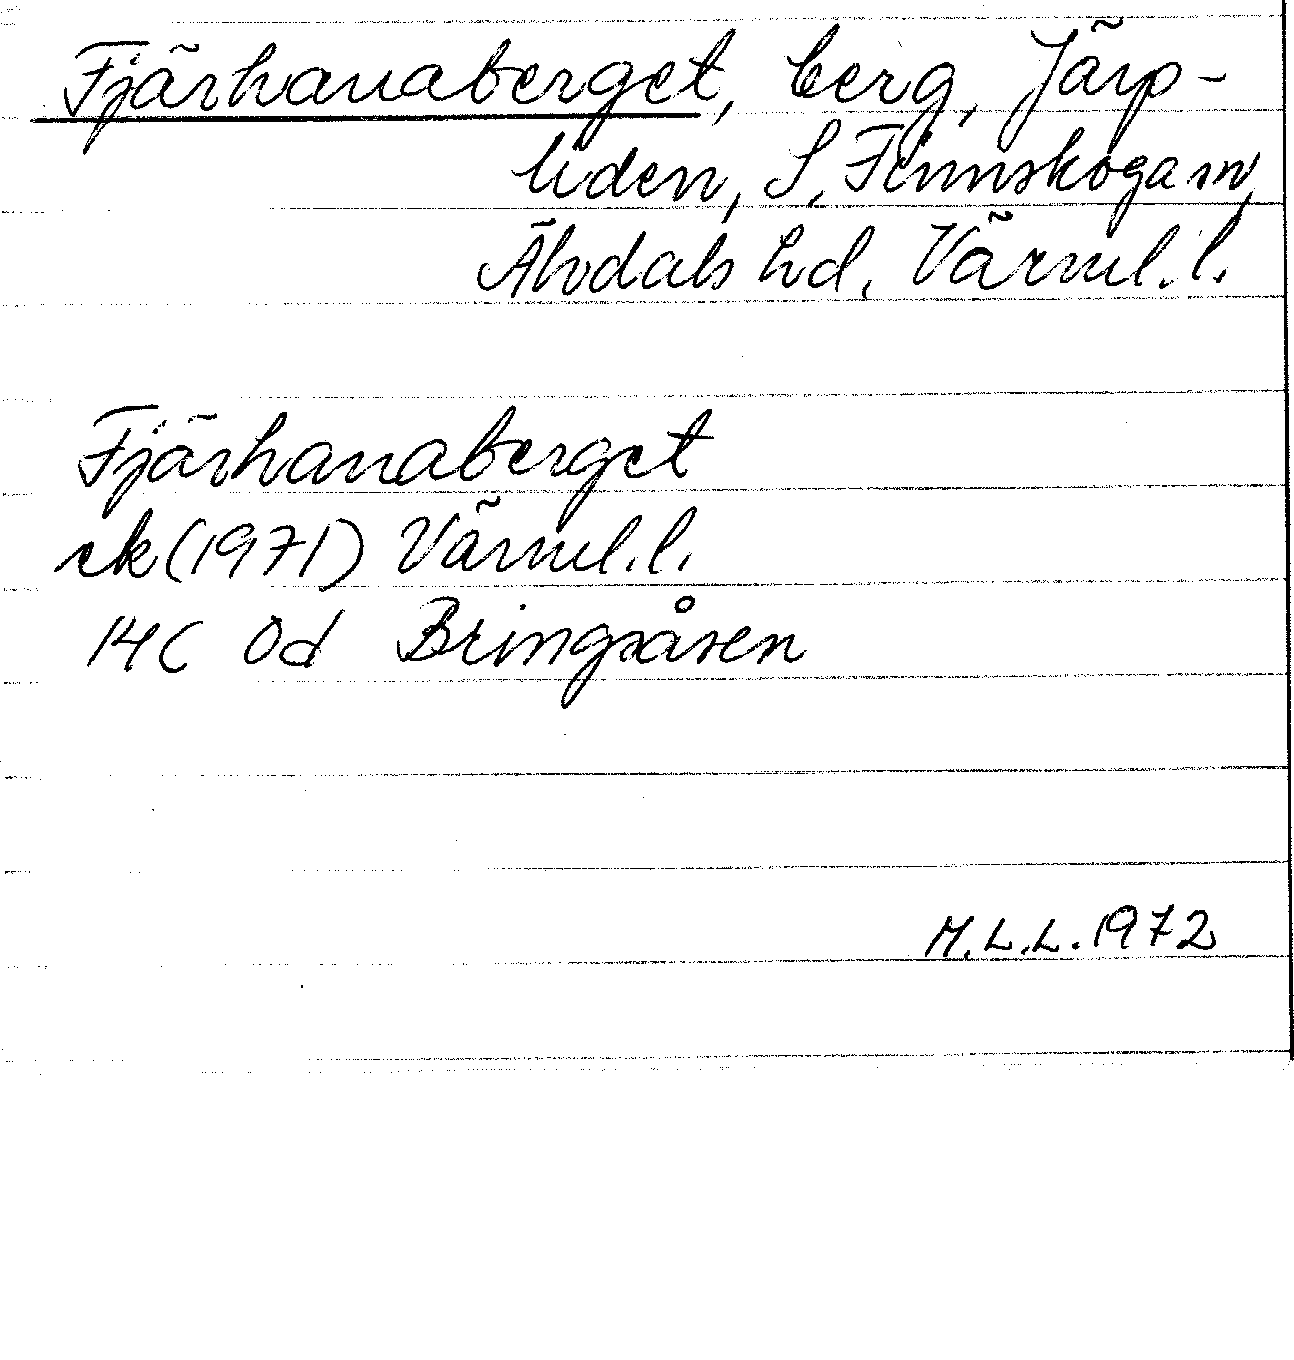 Fjärhanaberget, berg, Järp-
liden, S. Finnskoga sn,
Älvdals hd, Värml. l.
Fjärhanaberget
ek (1971) Värml. l.
14C 0d Bringsåsen
M.L.L. 1972